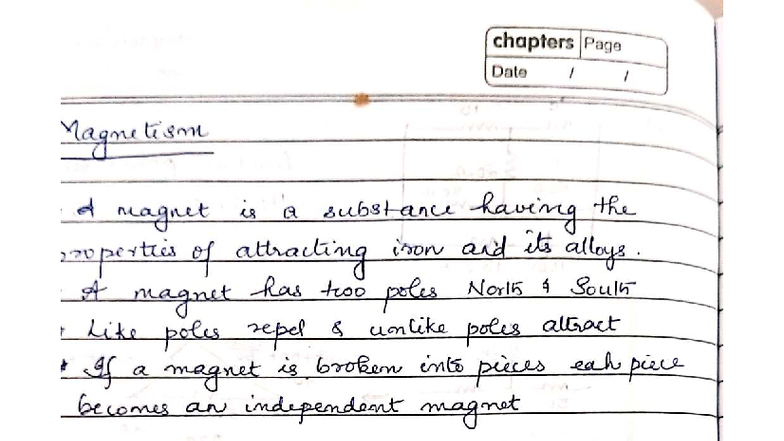 chapters Page
Date / /
Magnetism
A magnet is a substance having the
properties of attracting iron and its alloys.
A magnet has two poles North & South
Like poles repel & unlike poles attract
* If a magnet is broken into pieces eah piece
becomes an independent magnet